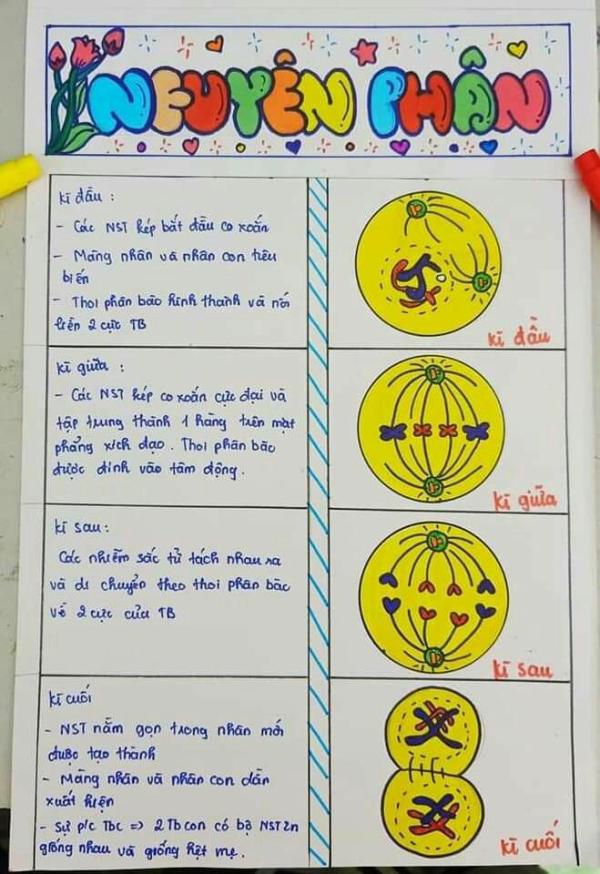 NGUYÊN PHÂN
Kì đầu :
- Các NST kép bắt đầu co xoắn
- Màng nhân và nhân con tiêu
biến
- Thoi phân bào hình thành và nối
liền 2 cực TB
kì đầu
Kì giữa :
- Các NST kép co xoắn cực đại và
tập trung thành 1 hàng trên mặt
phẳng xích đạo. Thoi phân bào
được dính vào tâm động.
kì giữa
Kì sau:
Các nhiễm sắc tử tách nhau ra
và di chuyển theo thoi phân bào
về 2 cực của TB
kì sau
Kì cuối
- NST nằm gọn trong nhân mới
được tạo thành
- Màng nhân và nhân con dần
xuất hiện
- Sự p/c Tbc => 2 Tb con có bộ NST 2n
giống nhau và giống hệt mẹ.
kì cuối